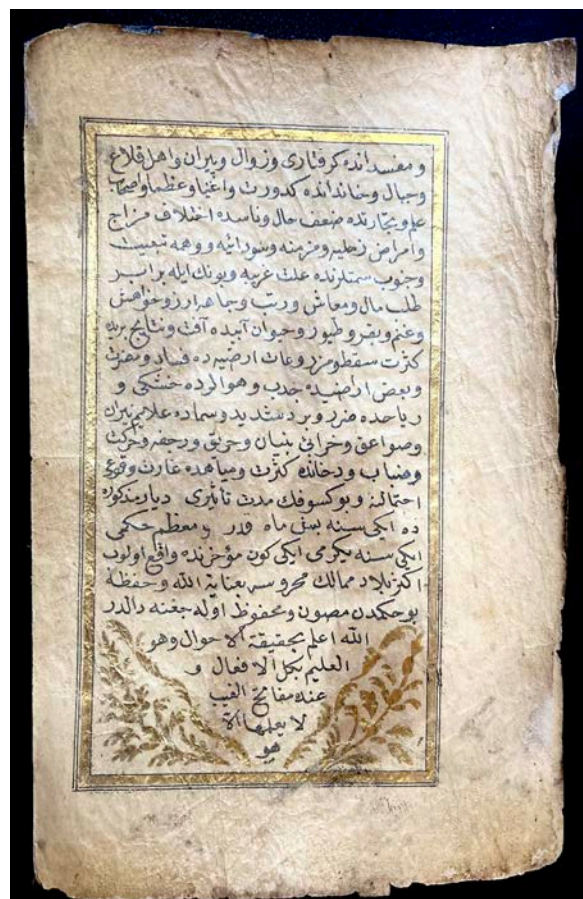 ومفسدانده كرفتارى وزوال وپيران واهل قلاع
وجبال وخاندانده كدورت واغنيا وعظما واصحاب
علم وتجارنده ضعف حال وناسده اختلاف مزاج
وامراض زحليه ومزمنه وسودائيه ووهمه تبعيت
وجنوب سمتلرنده علت غريبه وبونك ايله برابر
طلب مال ومعاش ورتب وجاهه ارزو خواهش
وغنم وبقر وطيور وحيوان آبيده آفت ونتايج بريه
كثرت سقط ومزروعات ارضيه ده فساد ومضرت
وبعض اراضيده جدب وهوالرده خشكى و
رياحده ضرر وبرد شديد وسماده علايم نيران
وصواعق وخرابئ بنيان وحرق ورجفه وحركت
وضباب ودخانده كثرت ومياهده غارت وقوعى
احتمالنه وبوكسوفك مدت تأثيرى ديار مذكوره
ده ايكى سنه بش ماه قدر ومعظم حكمى
ايكى سنه يكرمى ايكى كون مؤخرنده واقع اولوب
اكثر بلاد ممالك محروسه بعناية الله وحفظه
بو حكمدن مصون ومحفوظ اوله جغنه دالدر
الله اعلم بحقيقة الاحوال وهو
العليم بكل الافعال و
عنده مفاتح الغيب
لا يعلمها الا
هو